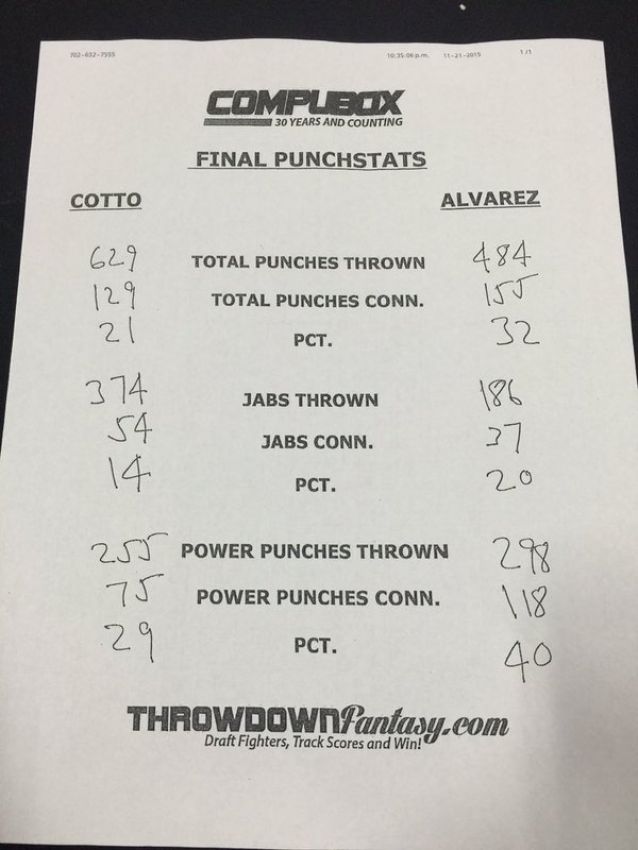 702-632-7555 10:35:06 p.m. 11-21-2015 1/1
COMPUBOX
30 YEARS AND COUNTING
FINAL PUNCHSTATS
COTTO ALVAREZ
629 TOTAL PUNCHES THROWN 484
129 TOTAL PUNCHES CONN. 155
21 PCT. 32
374 JABS THROWN 186
54 JABS CONN. 37
14 PCT. 20
255 POWER PUNCHES THROWN 298
75 POWER PUNCHES CONN. 118
29 PCT. 40
THROWDOWNFantasy.com
Draft Fighters, Track Scores and Win!